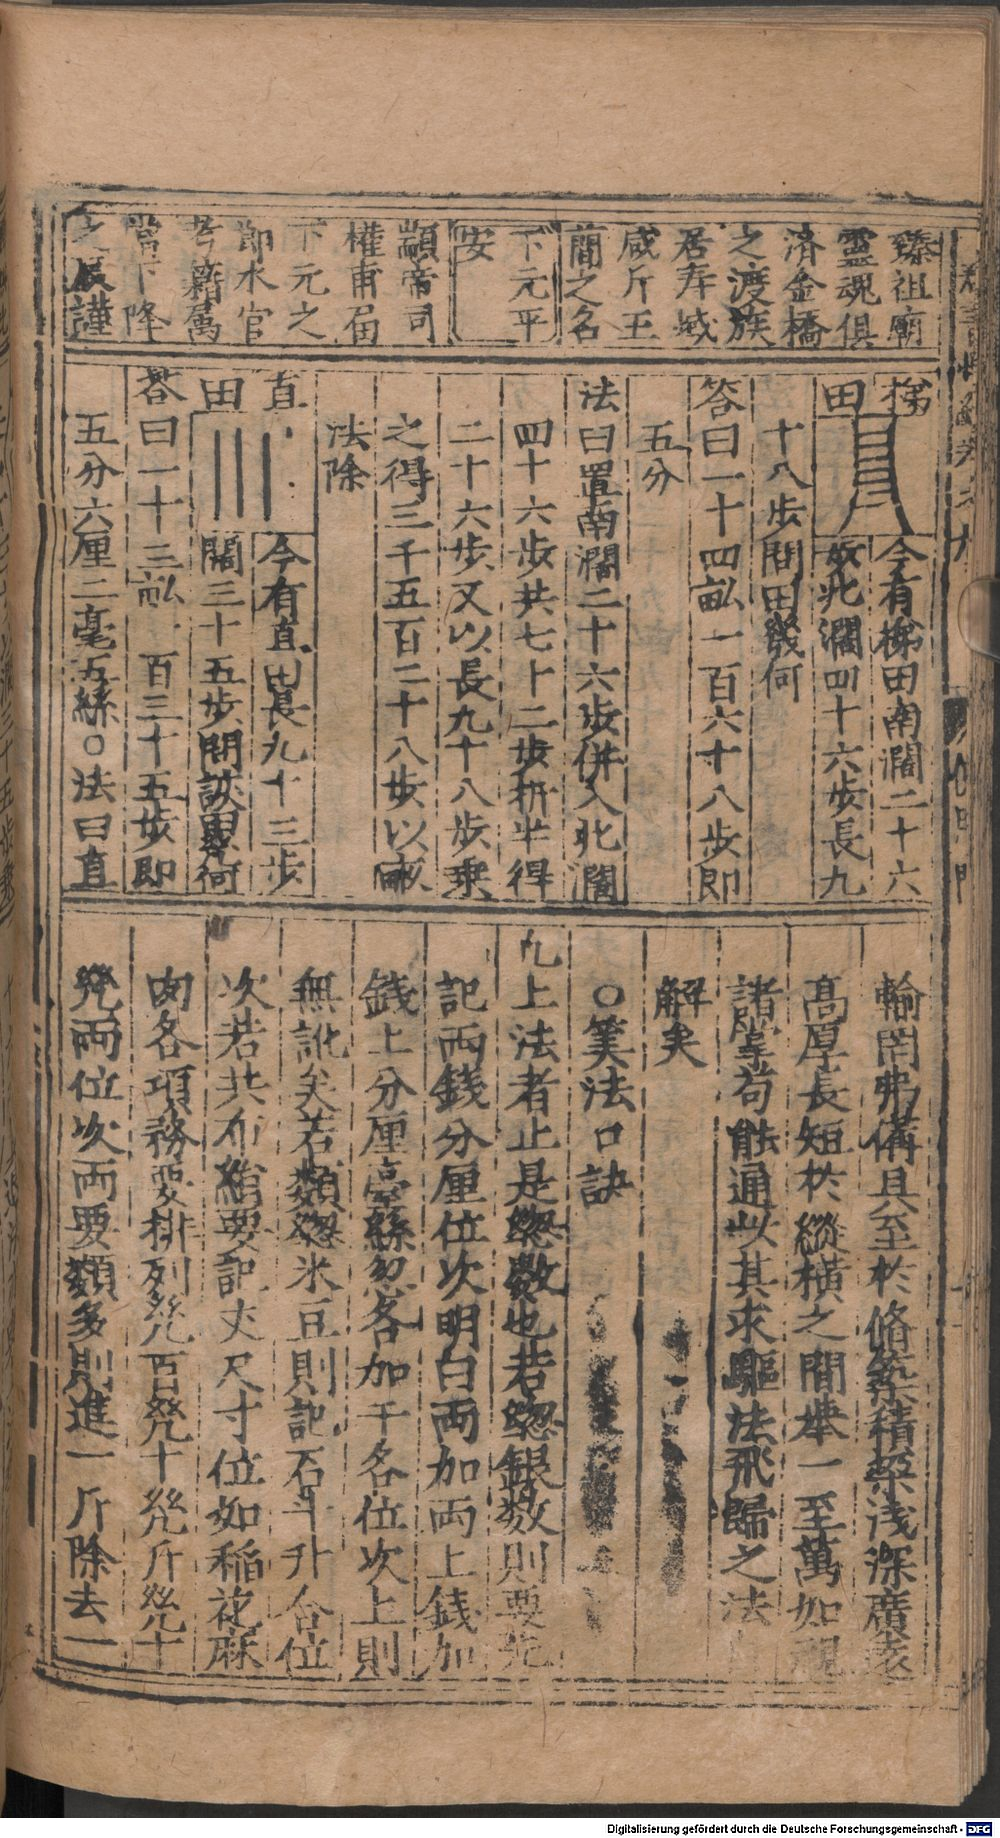 臻祖廟
靈魂俱
濟金橋
之渡族
居寿域
咸斤王
蕳之名
下元平
安
顓帝司
權甫届
下元之
節水官
考籍萬
當下降
之辰謹
梯田
今有梯田南濶二十六
步北濶四十六步長九
十八步問田幾何
答曰一十四畝一百六十八步即
五分
法曰置南濶二十六步併入北濶
四十六步共七十二步折半得
二十六步又以長九十八步乗
之得三千五百二十八步以畝
法除
直田
今有直田長九十三步
闊三十五步問該田㡬何
荅曰一十三畝一百三十五步即
五分六厘二毫五絲○法曰直
輸罔弗備具至於脩築積壘浅深廣袤
髙厚長短於縱橫之間㨗一至萬如視
諸掌苟能通以其求驅法飛歸之法
解矣
○筭法口訣
九上法者止是緫数也若緫銀数則要先
記両錢分厘位次明白両加両上錢加
錢上分厘毫絲忽各加于各位次上則
無訛矣若類緫米豆則記石斗升合位
次若共布絹要記丈尺寸位如稲花麻
肉各項務要排列㡬百㡬十㡬斤㡬十
㡬両位次両要類多則進一斤除去一
Digitalisierung gefördert durch die Deutsche Forschungsgemeinschaft - DFG